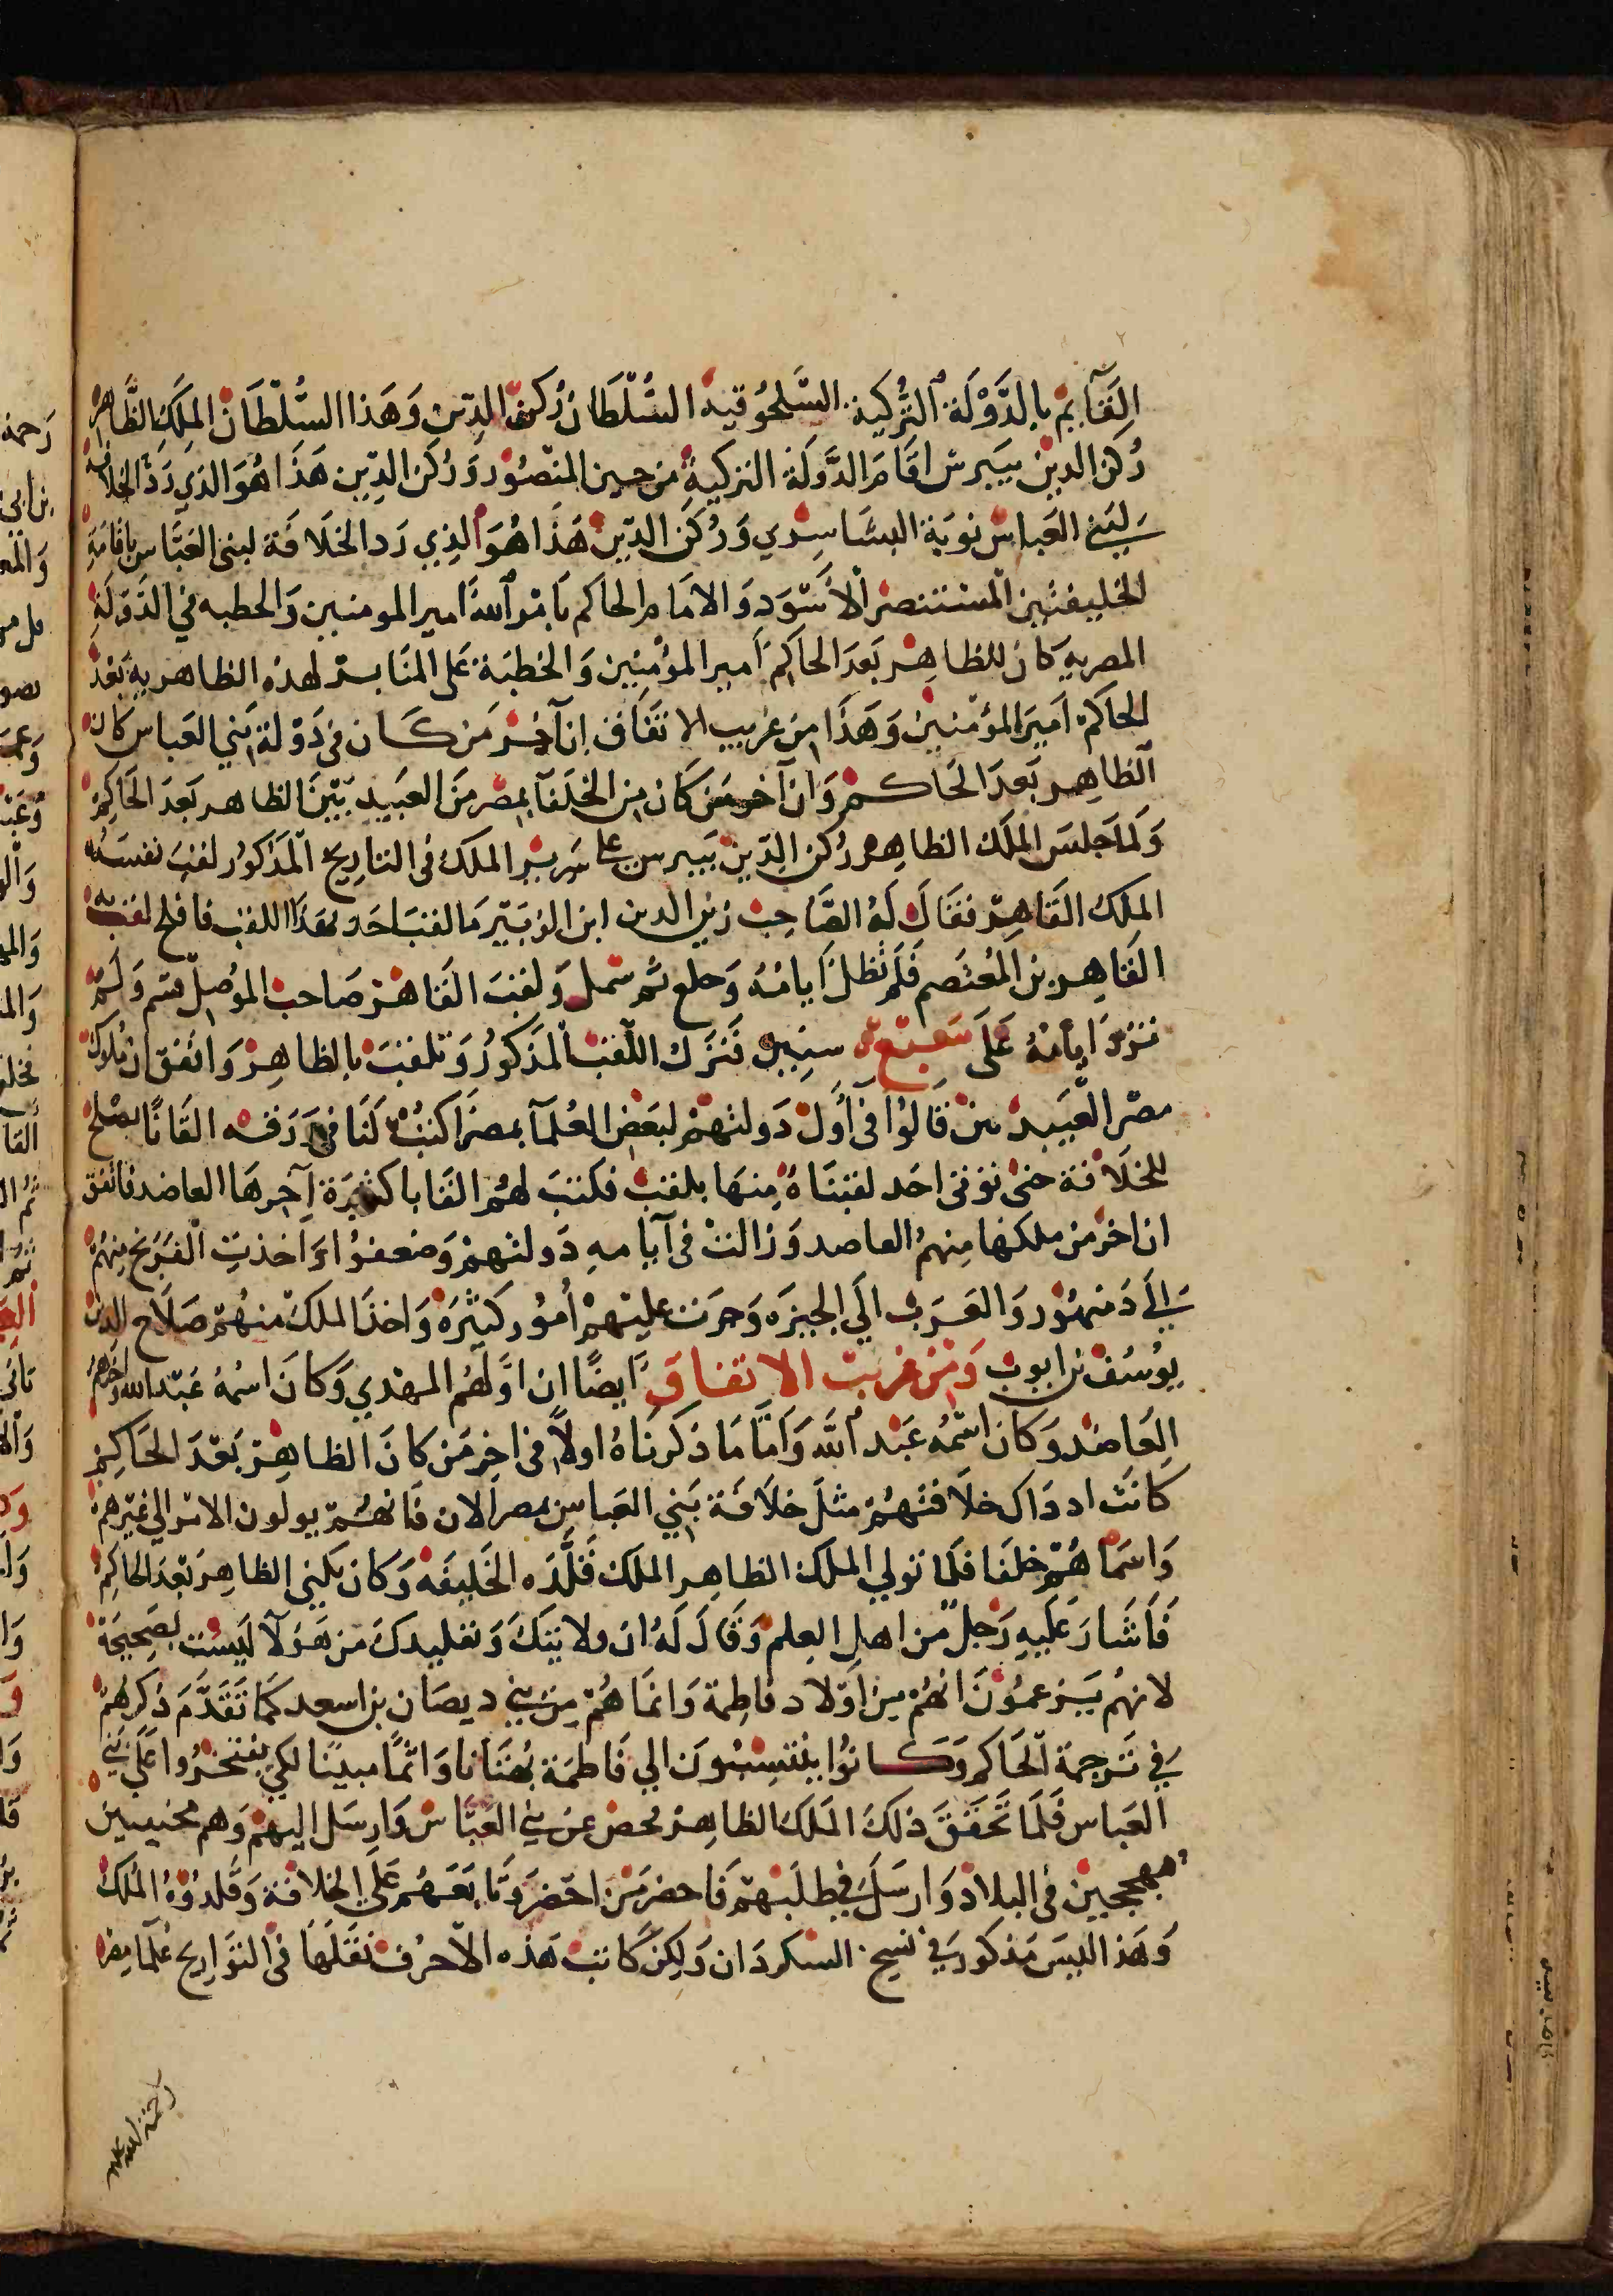 القآيم بالدولة التركية السلجوقية السلطان ركن الدين وهذا السلطان الملك الظاهر
ركن الدين بيبرس اقام الدولة التركية من حين المنصور وركن الدين هذا هو الذي رد الخلافة
لبني العباس نوبة البساسري وركن الدين هذا هو الذي رد الخلافة لبنى العباس باقامة
الخليفتين المستنصر الاسود والامام الحاكم بامر الله امير المومنين والخطبه في الدولة
المصريه كان للظاهر بعد الحاكم امير المؤمنين والخطبة على المنابر لهذه الظاهريه بعد
الحاكم امير المؤمنين وهذا من غريب الاتفاق ان آخر من كان فى دولة بني العباس كان
الظاهر بعد الحاكم وان آخر من كان من الخلفآ بمصر من العبيديين الظاهر بعد الحاكم
ولما جلس الملك الظاهر ركن الدين بيبرس على سرير الملك فى التاريخ المذكور لقب نفسه
الملك القاهر فقال له الصاحب زين الدين ابن الزبير ما لقب احد بهذا اللقب فافلح لقب به
القاهر بن المعتصم فلم تطل ايامه وخلع ثم سمل ولقب القاهر صاحب الموصل فسم ولم
تزد ايامه على سبع سنين فترك اللقب المذكور وتلقب بالظاهر واتفق ان ملوك
مصر العبيديين قالوا فى اول دولتهم لبعض العلمآ بمصر اكتب لنا فى ورقه القابا تصلح
للخلافة حتى نوفى احد لقبناه منها بلقب فكتب لهم القابا كثيرة آخرها العاضد فاتفق
ان اخر من ملكها منهم العاضد وزالت فى آيامه دولتهم وضعفوا واخذت الفرنج منهم
الى دمنهور والعرب الى الجيزه وجرت عليهم أمور كثيره واخذ الملك منهم صلاح الدين
يوسف بن ايوب ومن غريب الاتفاق ايضًا ان اولهم المهدي وكان اسمه عبد الله واخرهم
العاضد وكان اسمه عبد الله واما ما ذكرناه اولًا فى اخر من كان الظاهر بعد الحاكم
كانت اد داك خلافتهم مثل خلافة بني العباس بمصر الان فانهم يولون الامر الى غيرهم
واسماهم خلفا فلما تولي الملك الظاهر الملك قلده الخليفه وكان يكنى الظاهر بعد الحاكم
فاشار عليه رجل من اهل العلم وقال له ان ولايتك وتقليدك من هولآ ليست بصحيحة
لانهم يزعمون انهم من اولاد فاطمة وانما هم من بني ديصان بن اسعد كما تقدم ذكرهم
فى ترجمة الحاكم وكانوا ينتسبون الي فاطمة بهتانا واثما مبينا لكي يفتخروا على بني
العباس فلما تحقق ذلك الملك الظاهر فحص عن بني العباس وارسل اليهم وهم مختبيين
مهججين فى البلاد وارسل في طلبهم فاحضر من احضر وبايعهم على الخلافة وقلدوه الملك
وهذا ليس مذكور فى نسخ السكردان ولكن كاتب هذه الاحرف نقلها فى التواريخ علمآ مصر
رحمة الله عليه